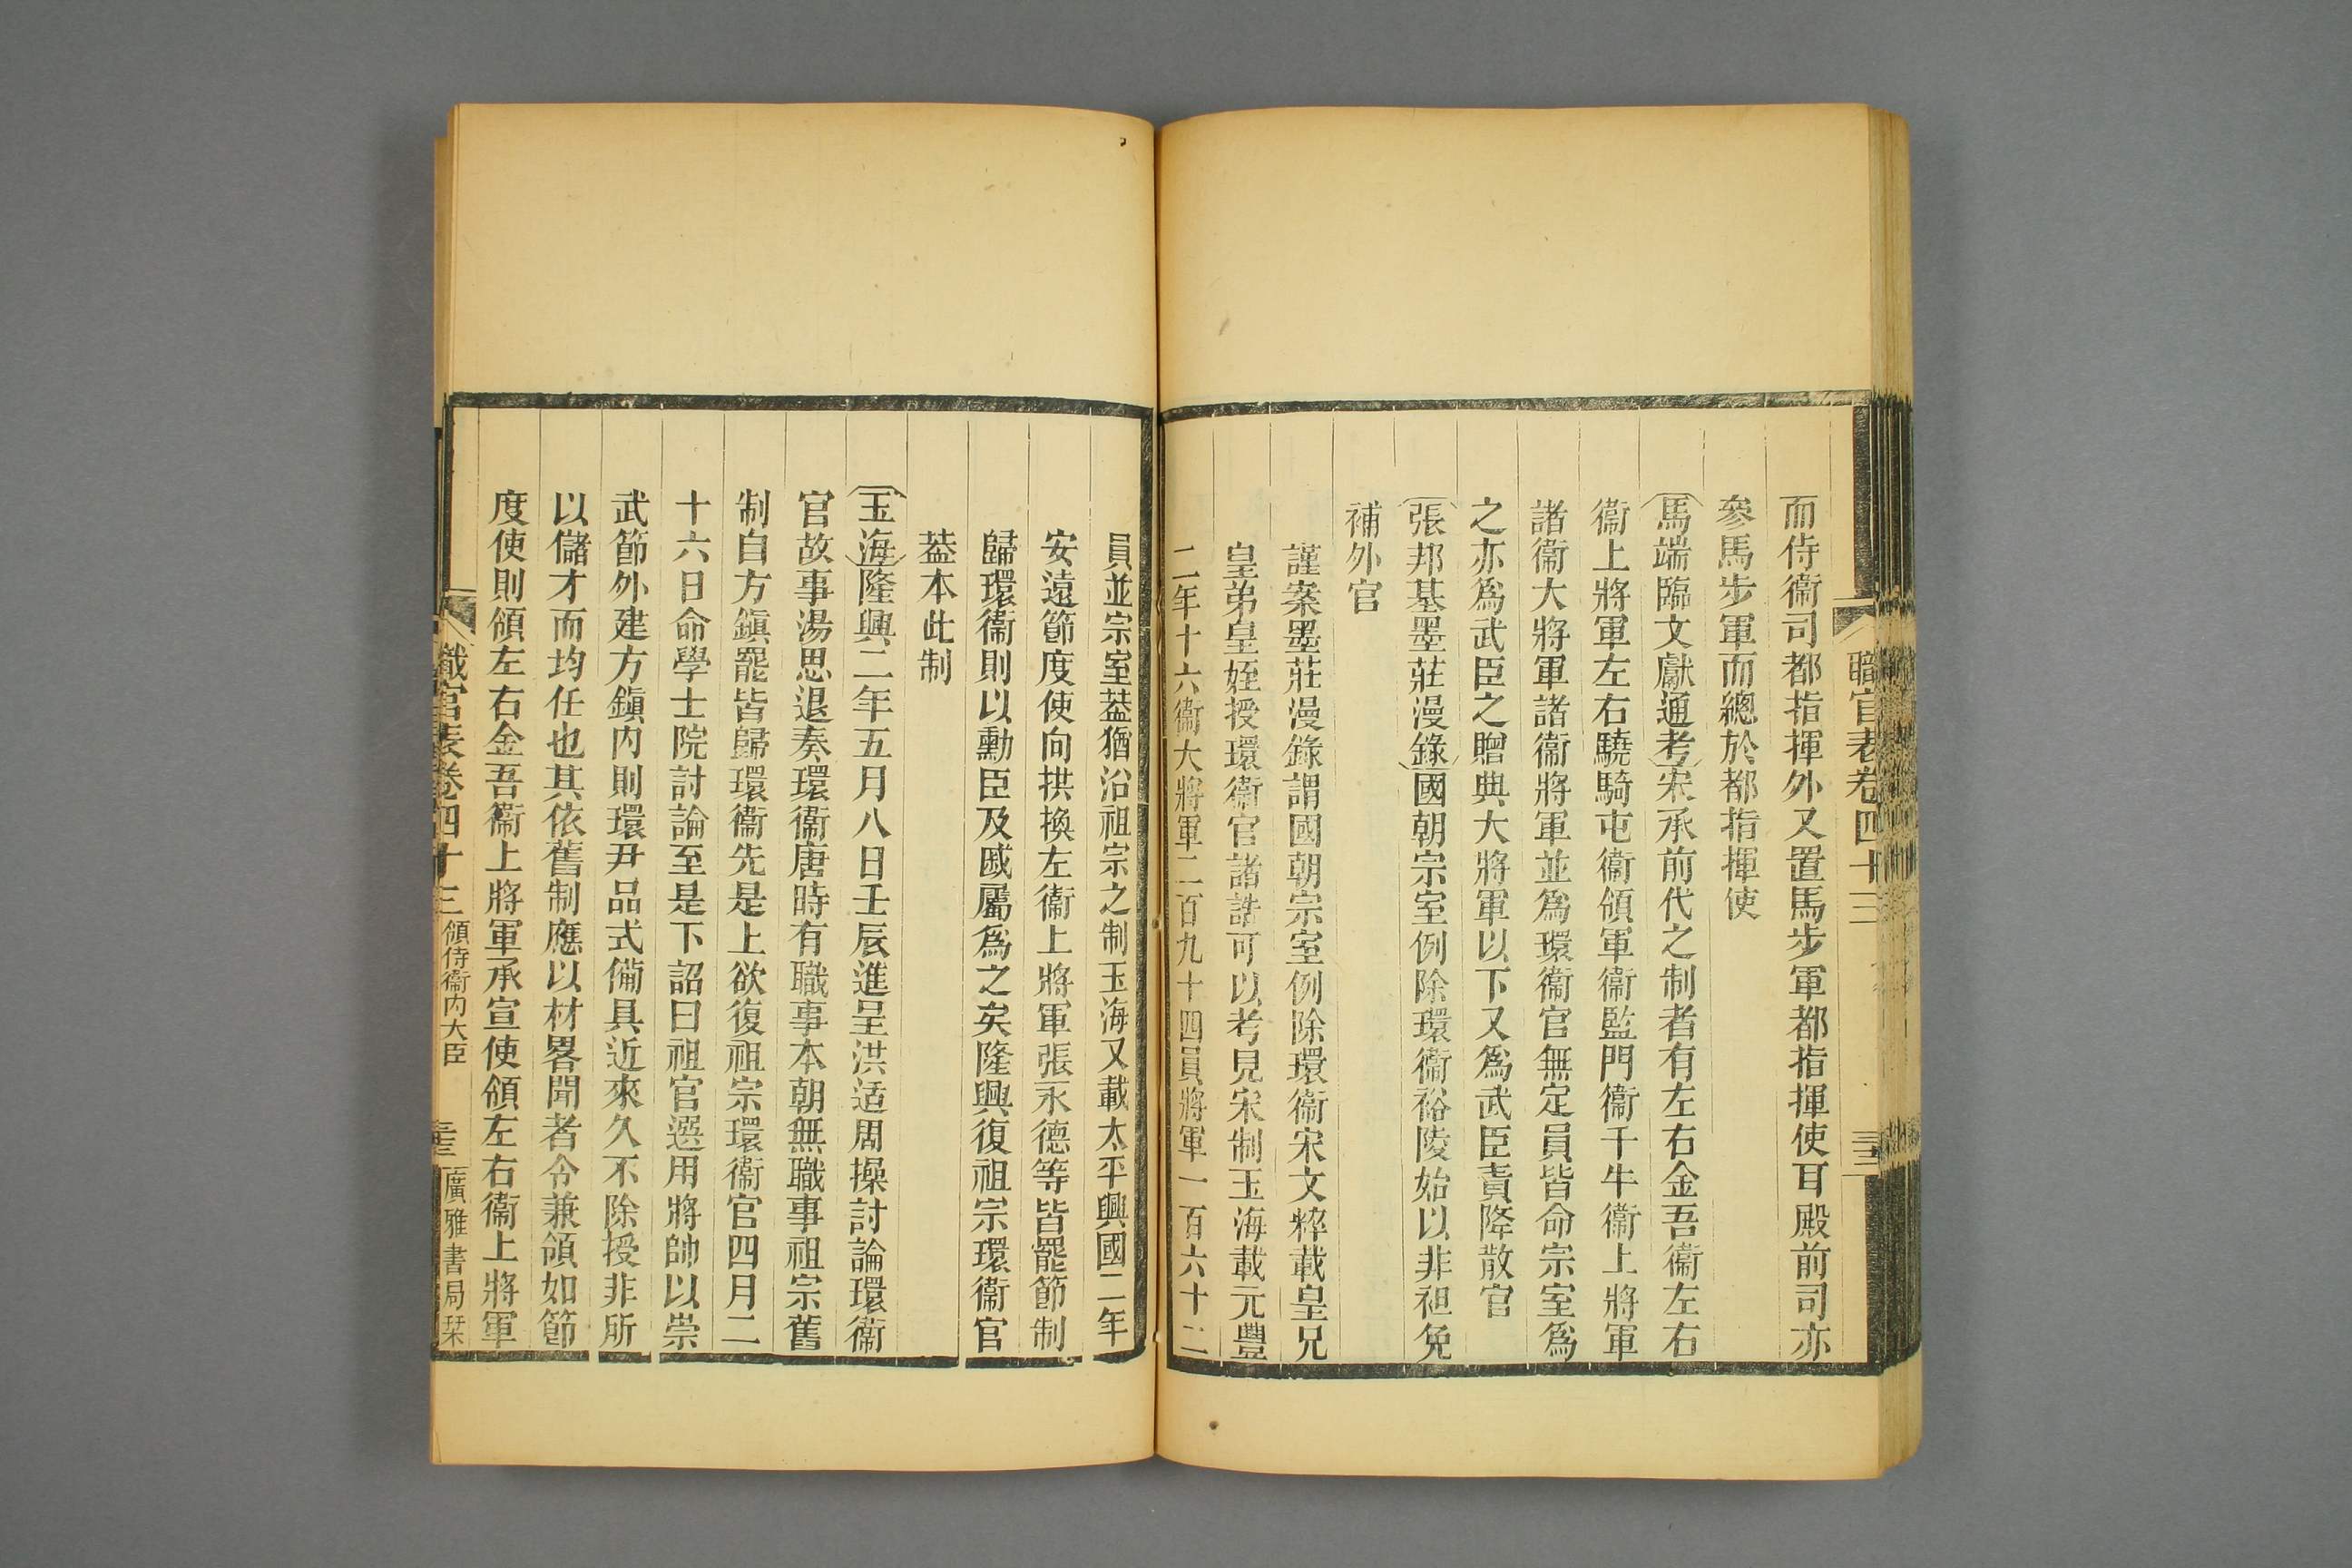 職官表卷四十三
而侍衞司都指揮外又置馬步軍都指揮使耳殿前司亦
參馬步軍而總於都指揮使
馬端臨文獻通考宋承前代之制者有左右金吾衞左右
衞上將軍左右驍騎屯衞領軍衞監門衞千牛衞上將軍
諸衞大將軍諸衞將軍並爲環衞官無定員皆命宗室爲
之亦爲武臣之贈典大將軍以下又爲武臣責降散官
張邦基墨莊漫錄國朝宗室例除環衞裕陵始以非袒免
補外官
謹案墨莊漫錄謂國朝宗室例除環衞宋文粹載皇兄
皇弟皇姪授環衞官諸誥可以考見宋制玉海載元豐
二年十六衞大將軍二百九十四員將軍一百六十二
員並宗室葢猶沿祖宗之制玉海又載太平興國二年
安遠節度使向拱換左衞上將軍張永德等皆罷節制
歸環衞則以勳臣及戚屬爲之矣隆興復祖宗環衞官
葢本此制
玉海隆興二年五月八日壬辰進呈洪适周操討論環衞
官故事湯思退奏環衞唐時有職事本朝無職事祖宗舊
制自方鎭罷皆歸環衞先是上欲復祖宗環衞官四月二
十六日命學士院討論至是下詔曰祖官選用將帥以崇
武節外建方鎭內則環尹品式備具近來久不除授非所
以儲才而均任也其依舊制應以材畧聞者令兼領如節
度使則領左右金吾衞上將軍承宣使領左右衞上將軍
職官表卷四十三 領侍衞內大臣 廣雅書局栞